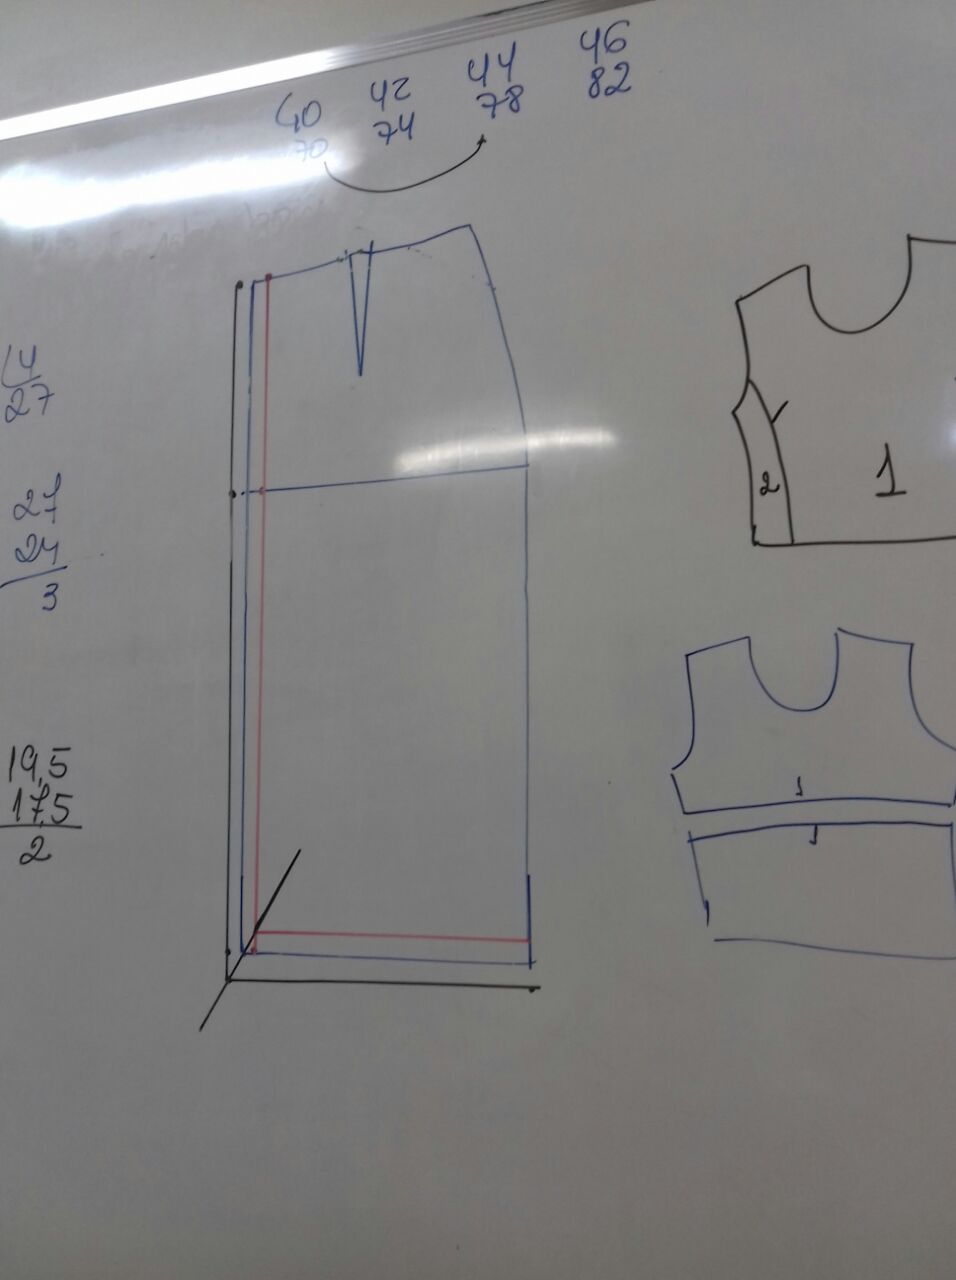 40 42 44 46
70 74 78 82
27
27
24
3
2 1
19,5
17,5
2
1
1